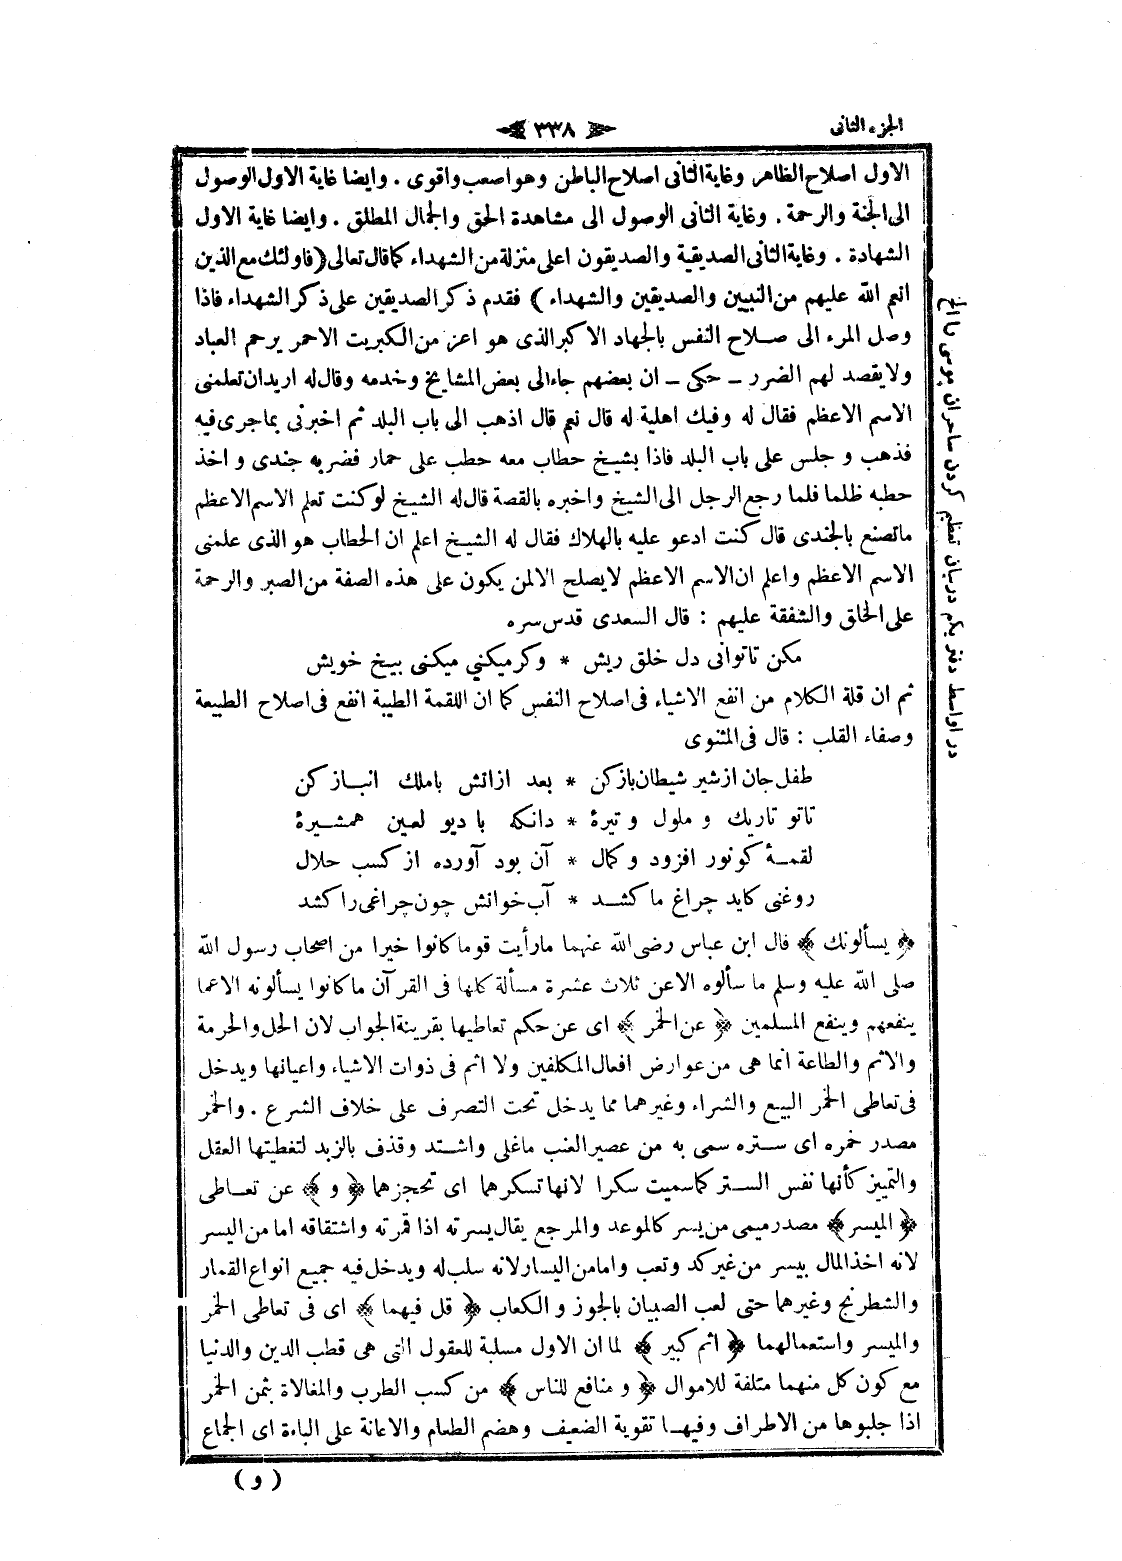 الجزء الثانى
٣٣٨
الاول اصلاح الظاهر وغاية الثانى اصلاح الباطن وهو اصعب واقوى . وايضا غاية الاول الوصول
الى الجنة والرحمة . وغاية الثانى الوصول الى مشاهدة الحق والجمال المطلق . وايضا غاية الاول
الشهادة . وغاية الثانى الصديقية والصديقون اعلى منزلة من الشهداء كما قال تعالى (فاولئك مع الذين
انعم الله عليهم من النبيين والصديقين والشهداء ) فقدم ذكر الصديقين على ذكر الشهداء فاذا
وصل المرء الى صلاح النفس بالجهاد الاكبر الذى هو اعز من الكبريت الاحمر يرحم العباد
ولا يقصد لهم الضرر ــ حكى ــ ان بعضهم جاء الى بعض المشايخ وخدمه وقال له اريدان تعلمنى
الاسم الاعظم فقال له وفيك اهلية له قال نعم قال اذهب الى باب البلد ثم اخبرنى بما جرى فيه
فذهب و جلس على باب البلد فاذا بشيخ حطاب معه حطب على حمار فضربه جندى و اخذ
حطبه ظلما فلما رجع الرجل الى الشيخ واخبره بالقصة قال له الشيخ لو كنت تعلم الاسم الاعظم
ما تصنع بالجندى قال كنت ادعو عليه بالهلاك فقال له الشيخ اعلم ان الحطاب هو الذى علمنى
الاسم الاعظم واعلم ان الاسم الاعظم لا يصلح الا لمن يكون على هذه الصفة من الصبر والرحمة
على الخلق والشفقة عليهم : قال السعدى قدس سره
مكن تاتوانى دل خلق ريش * وكر ميكني ميكنى بيخ خويش
ثم ان قلة الكلام من انفع الاشياء فى اصلاح النفس كما ان اللقمة الطيبة انفع فى اصلاح الطبيعة
وصفاء القلب : قال فى المثنوى
طفل جان از شير شيطان باز كن * بعد ازانش باملك انباز كن
تاتو تاريك و ملول و تيرۀ * دانكه با ديو لعين همشيرۀ
لقمۀ كو نور افزود و كمال * آن بود آورده از كسب حلال
روغنى كايد چراغ ما كشد * آب خوانش چون چراغى را كشد
﴿ يسألونك ﴾ قال ابن عباس رضى الله عنهما مارأيت قوما كانوا خيرا من اصحاب رسول الله
صلى الله عليه وسلم ما سألوه الا عن ثلاث عشرة مسألة كلها فى القرآن ما كانوا يسألونه الا عما
ينفعهم وينفع المسلمين ﴿ عن الخمر ﴾ اى عن حكم تعاطيها بقرينة الجواب لان الحل والحرمة
والاثم والطاعة انما هى من عوارض افعال المكلفين ولا اثم فى ذوات الاشياء واعيانها ويدخل
فى تعاطى الخمر البيع والشراء وغيرهما مما يدخل تحت التصرف على خلاف الشرع . والخمر
مصدر خمره اى ستره سمى به من عصير العنب ماغلى واشتد وقذف بالزبد لتغطيتها العقل
والتمييز كأنها نفس الستر كما سميت سكرا لانها تسكرهما اى تحجزهما ﴿ و ﴾ عن تعاطى
﴿ الميسر ﴾ مصدر ميمى من يسر كالموعد والمرجع يقال يسرته اذا قمرته واشتقاقه اما من اليسر
لانه اخذ المال بيسر من غير كد وتعب واما من اليسار لانه سلب له ويدخل فيه جميع انواع القمار
والشطرنج وغيرهما حتى لعب الصبيان بالجوز و الكعاب ﴿ قل فيهما ﴾ اى فى تعاطى الخمر
والميسر واستعمالهما ﴿ اثم كبير ﴾ لما ان الاول مسلبة للعقول التى هى قطب الدين والدنيا
مع كون كل منهما متلفة للاموال ﴿ و منافع للناس ﴾ من كسب الطرب والمغالاة بثمن الخمر
اذا جلبوها من الاطراف وفيها تقوية الضعيف وهضم الطعام والاعانة على الباءة اى الجماع
( و )
در اواسط دفتر يكم دربيان تعظيم كردن ساحران موسى را الخ